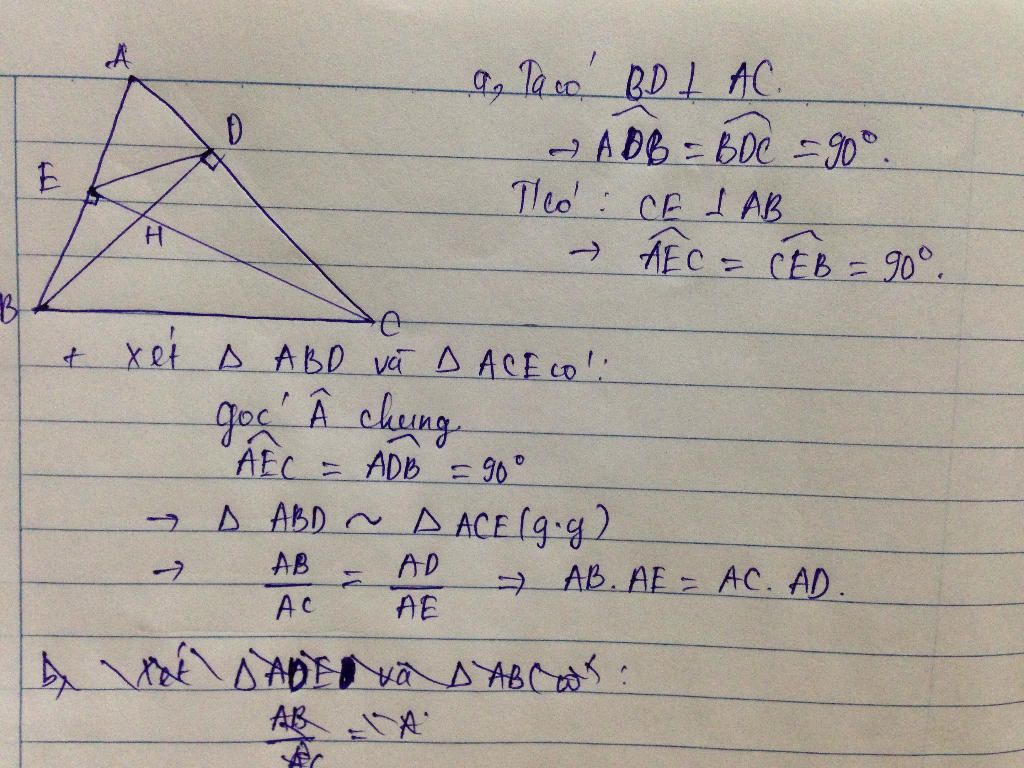 A
D
E
H
B
C
a, Ta có BD ⊥ AC.
→ \widehat{ADB} = \widehat{BDC} = 90°.
CE ⊥ AB
→ \widehat{AEC} = \widehat{CEB} = 90°.
+ xét Δ ABD và Δ ACE có:
góc Â chung
\widehat{AEC} = \widehat{ADB} = 90°
→ Δ ABD ~ Δ ACE (g.g)
→ AB/AC = AD/AE ⇒ AB. AE = AC. AD.
b, xét Δ ADE và Δ ABC có:
AB/AC = A